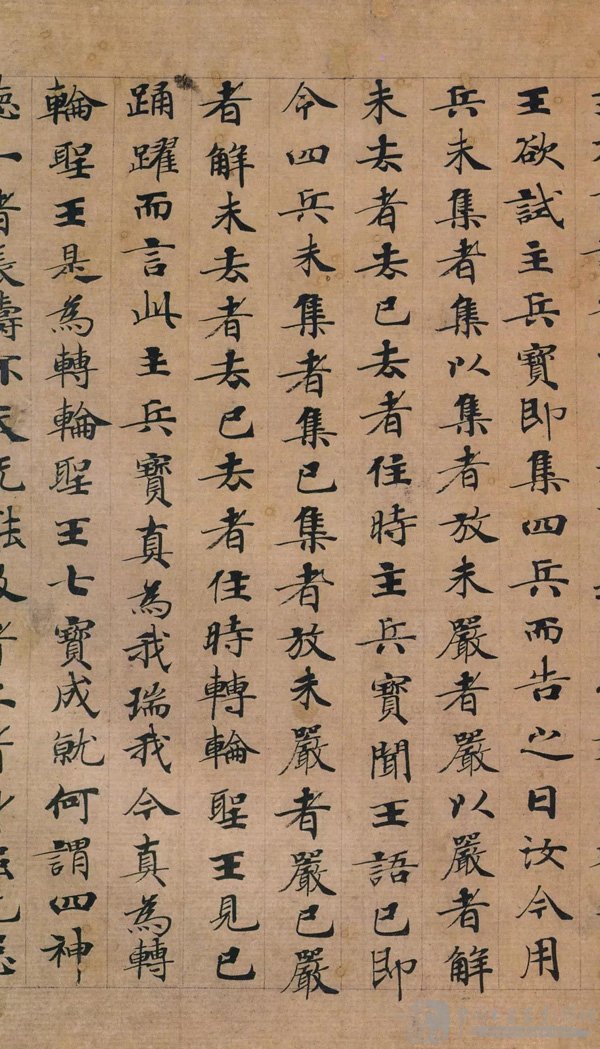 王欲試主兵寶即集四兵而告之曰汝今用
兵未集者集以集者放未嚴者嚴以嚴者解
未去者去已去者住時主兵寶聞王語已即
令四兵未集者集已集者放未嚴者嚴已嚴
者解未去者去已去者住時轉輪聖王見已
踊躍而言此主兵寶真為我瑞我今真為轉
輪聖王是為轉輪聖王七寶成就何謂四神
德一者長壽不夭无能及者二者身